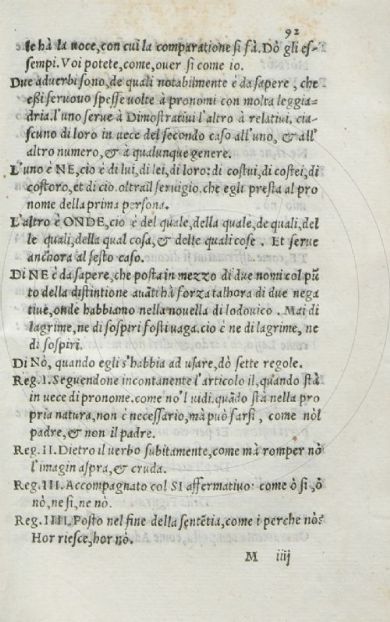 92
le hà la uoce, con cui la comparatione si fà. Dò gli es-
sempi. Voi potete, come, ouer si come io.
Due aduerbi sono, de quali notabilmente è da sapere, che
eßi seruouo spesse uolte à pronomi con molta leggia-
dria. l'uno serue à Dimostratiui l'altro à relatiui, cia-
scuno di loro in uece del secondo caso all'uno, & all'
altro numero, & à qualunque genere.
L'uno è NE, cio è di lui, di lei, di loro: di costui, di costei, di
costoro, et di cio. oltra il seruigio, che egli presta al pro
nome della prima persona.
L'altro è ONDE, cio è del quale, della quale, de quali, del
le quali, della qual cosa, & delle quali cose. Et serue
anchora al sesto caso.
Di NE è da sapere, che posta in mezzo di due nomi col pũ
to della distintione auãti hà forza talhora di due nega
tiue, onde habbiamo nella nouella di lodouico. Mai di
lagrime, ne di sospiri fosti uaga. cio è ne di lagrime, ne
di sospiri.
Di Nò, quando egli s'habbia ad usare, dò sette regole.
Reg. I. Seguendone incontanente l'articolo il, quando stà
in uece di pronome. come no'l uidi. quãdo stà nella pro
pria natura, non è necessario, mà può farsi, come nòl
padre, & non il padre.
Reg. II. Dietro il uerbo subitamente, come mà romper nò
l'imagin aspra, & cruda.
Reg. III. Accompagnato col SI affermatiuo: come ò si, ò
nò, ne si, ne nò.
Reg. IIII. Posto nel fine della sentẽtia, come i perche nòs?
Hor riesce, hor nò.
M iiij